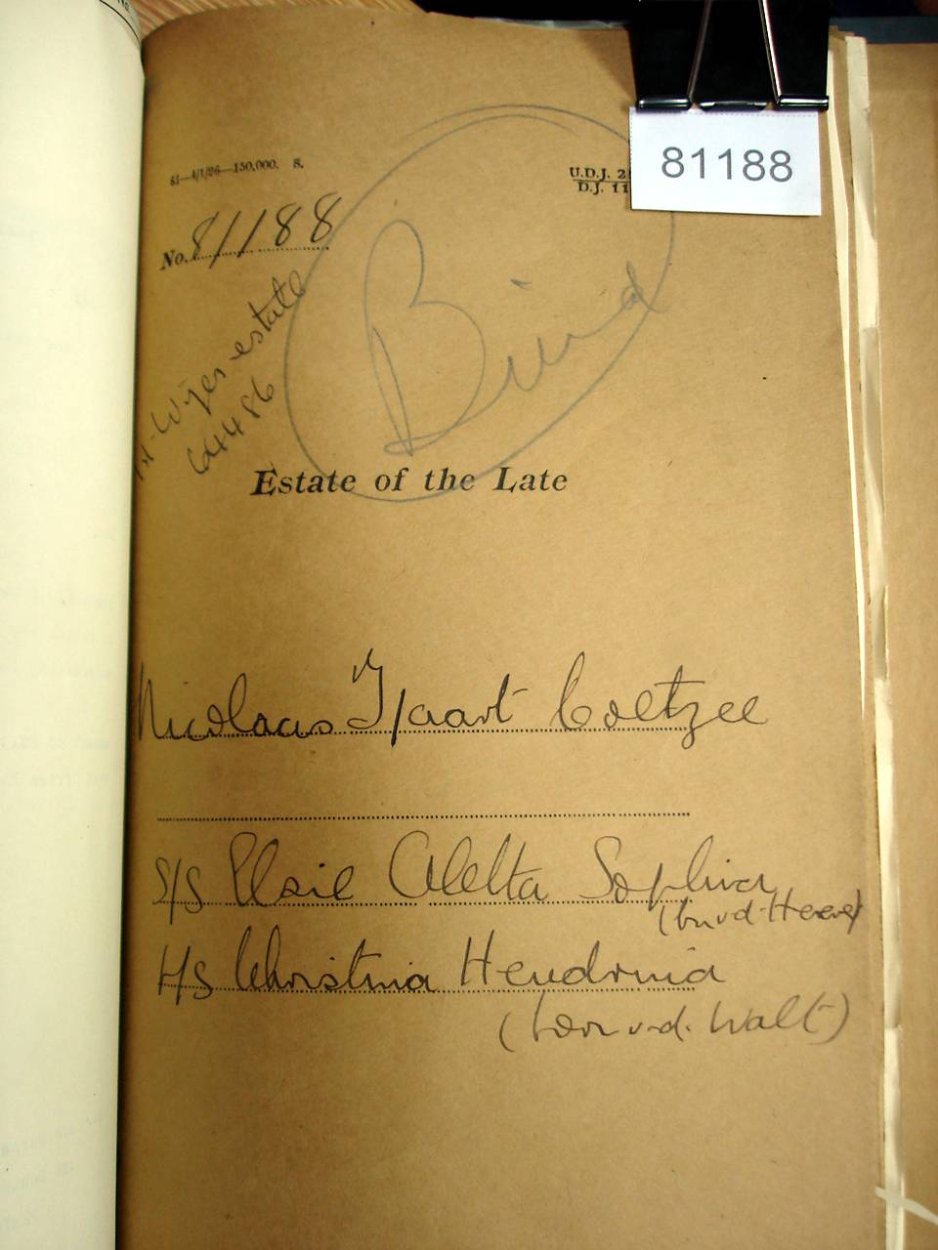 81188
81—4/1/26—150,000. S.
U.D.J. 2
D.J. 11
No. 81188
Bind
Wifes estate
64486
Estate of the Late
Nicolaas Tjaart Coetzee
S/S Elsie Aletta Sophia
H/S Christina Hendrina
(born v.d. Walt)